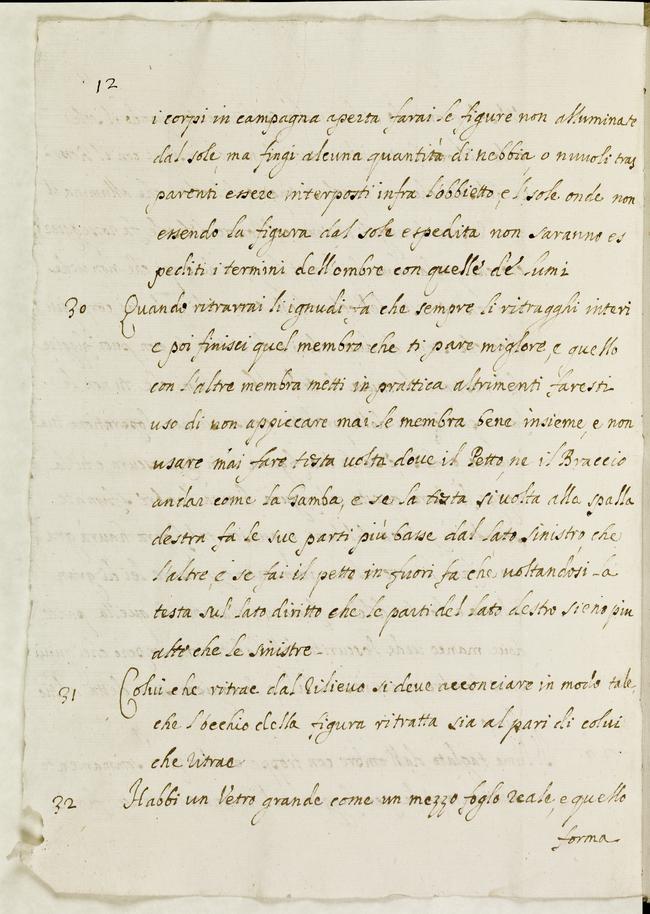 12
i corpi in campagna aperta farai le figure non alluminate
dal sole, ma fingi alcuna quantità di nebbia o nuvoli tras
parenti essere interposti infra l'obbietto, e l'sole onde non
essendo la figura dal sole espedita non saranno es
pediti i termini dell'ombre con quelle de' lumi
30 Quando ritrarrai li ignudi, fa che sempre li ritragghi interi
e poi finisci quel membro che ti pare miglore, e quello
con l'altre membra metti in prattica altrimenti faresti
uso di non appiccare mai le membra bene insieme, e non
usare mai fare testa volta dove il Petto, ne il Braccio
andar come la Gamba, e se la testa si volta alla spalla
destra fa le sue parti più basse dal lato sinistro che
l'altre, e se fai il petto in fuori fa che voltandosi la
testa sul' lato diritto che le parti del lato destro sieno piu
alte che le sinistre.
31 Colui che ritrae dal rilievo si deve acconciare in modo tale,
che l'occhio della figura ritratta sia al pari di colui
che ritrae
32 Habbi un Vetro grande come un mezzo foglo reale, e quello
forma